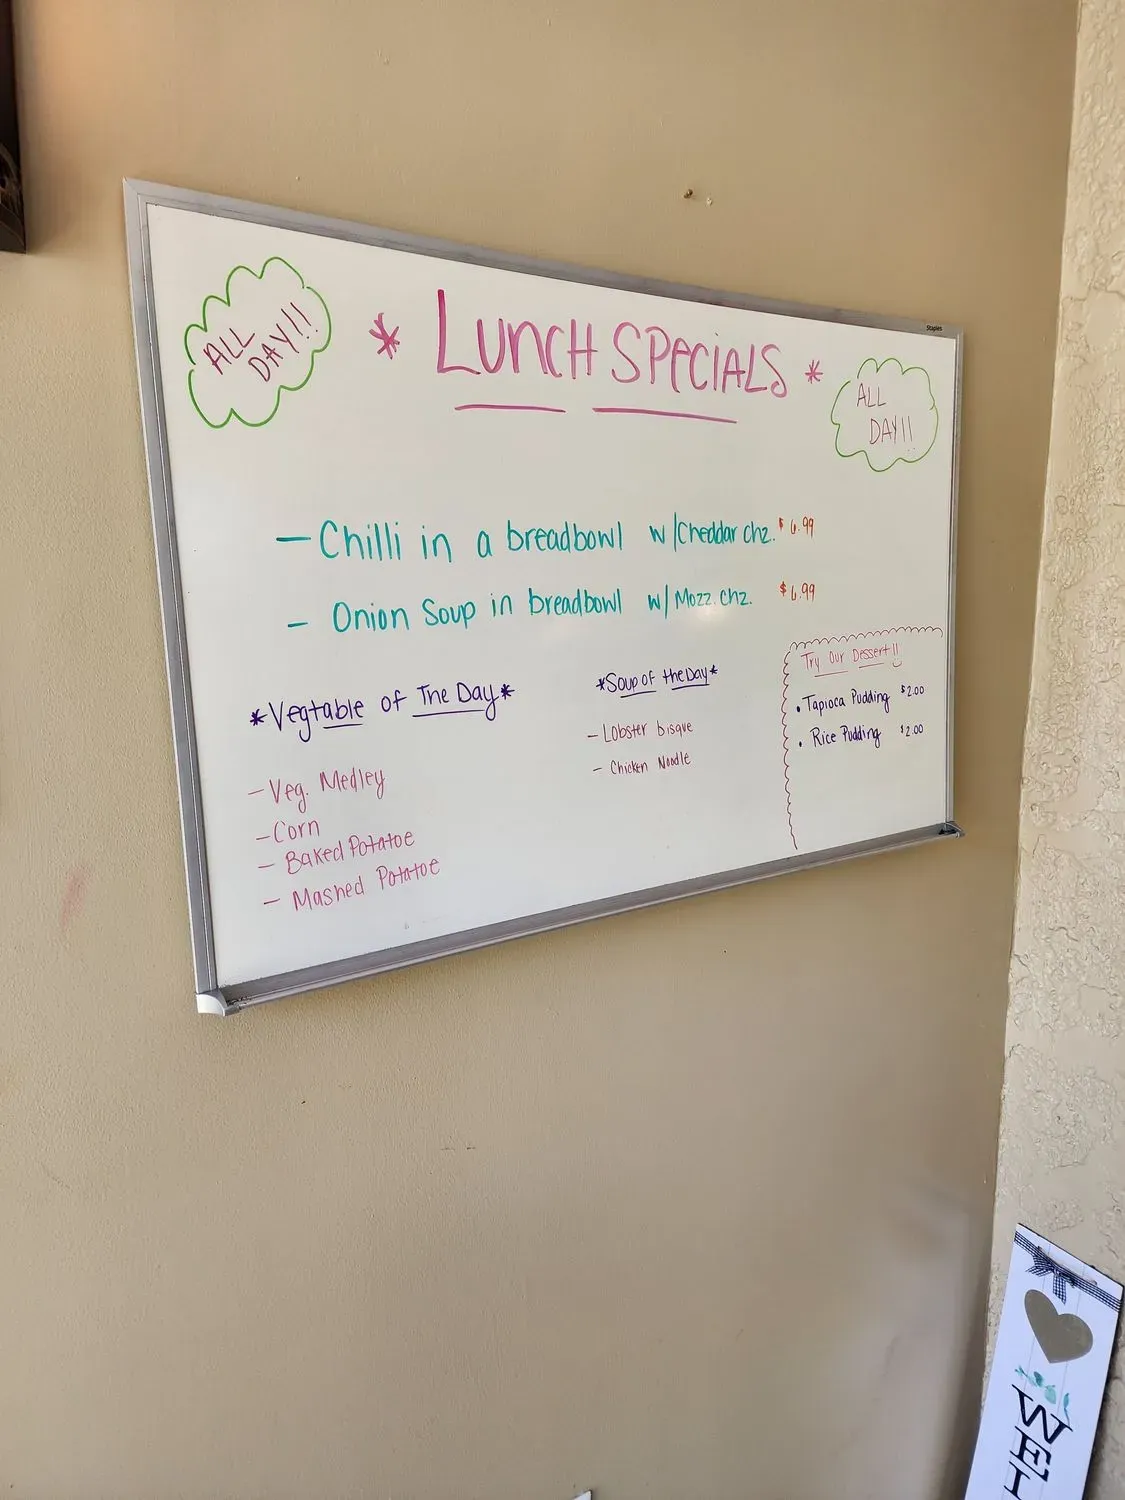 Staples
ALL
DAY!!
* LUNCH SPECIALS *
ALL
DAY!!
- Chilli in a breadbowl w/Cheddar chz. $6.99
- Onion Soup in breadbowl w/Mozz. chz. $6.99
*Vegtable of The Day*
- Veg. Medley
- Corn
- Baked Potatoe
- Mashed Potatoe
*Soup of the Day*
- Lobster bisque
- Chicken Noodle
Try Our Dessert!!
• Tapioca Pudding $2.00
• Rice Pudding $2.00
WEL